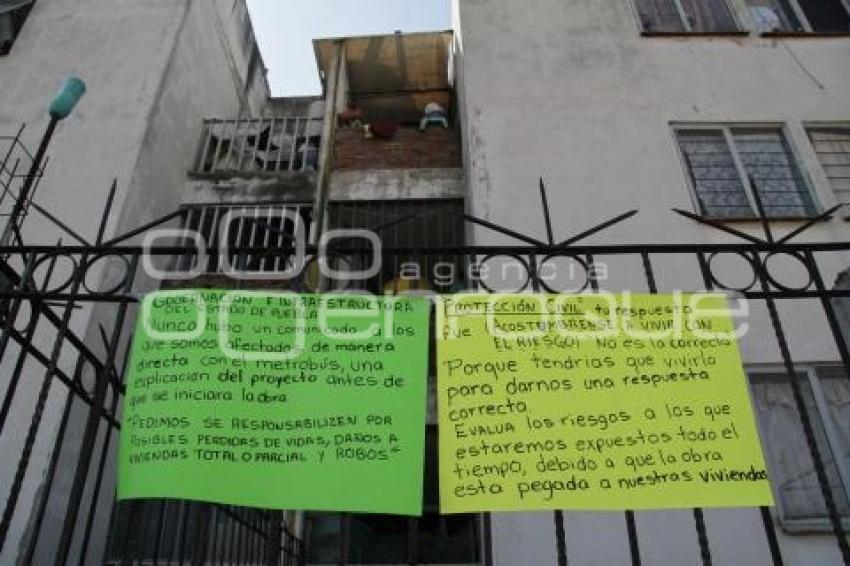 GOBERNACIÓN E INFRAESTRUCTURA
DEL ESTADO DE PUEBLA
Nunca hubo un comunicado a los
que somos afectados de manera
directa con el metrobús, una
explicación del proyecto antes de
que se iniciara la obra.
*PEDIMOS SE RESPONSABILIZEN POR
POSIBLES PERDIDAS DE VIDAS, DAÑOS A
VIVIENDAS TOTAL O PARCIAL Y ROBOS*
PROTECCIÓN CIVIL tu respuesta
que "ACOSTUMBRENSE A VIVIR CON
EL RIESGO", NO es la correcta
Porque tendrias que vivirlo
para darnos una respuesta
correcta.
EVALUA los riesgos a los que
estaremos expuestos todo el
tiempo, debido a que la obra
esta pegada a nuestras viviendas
agencia
enfoque